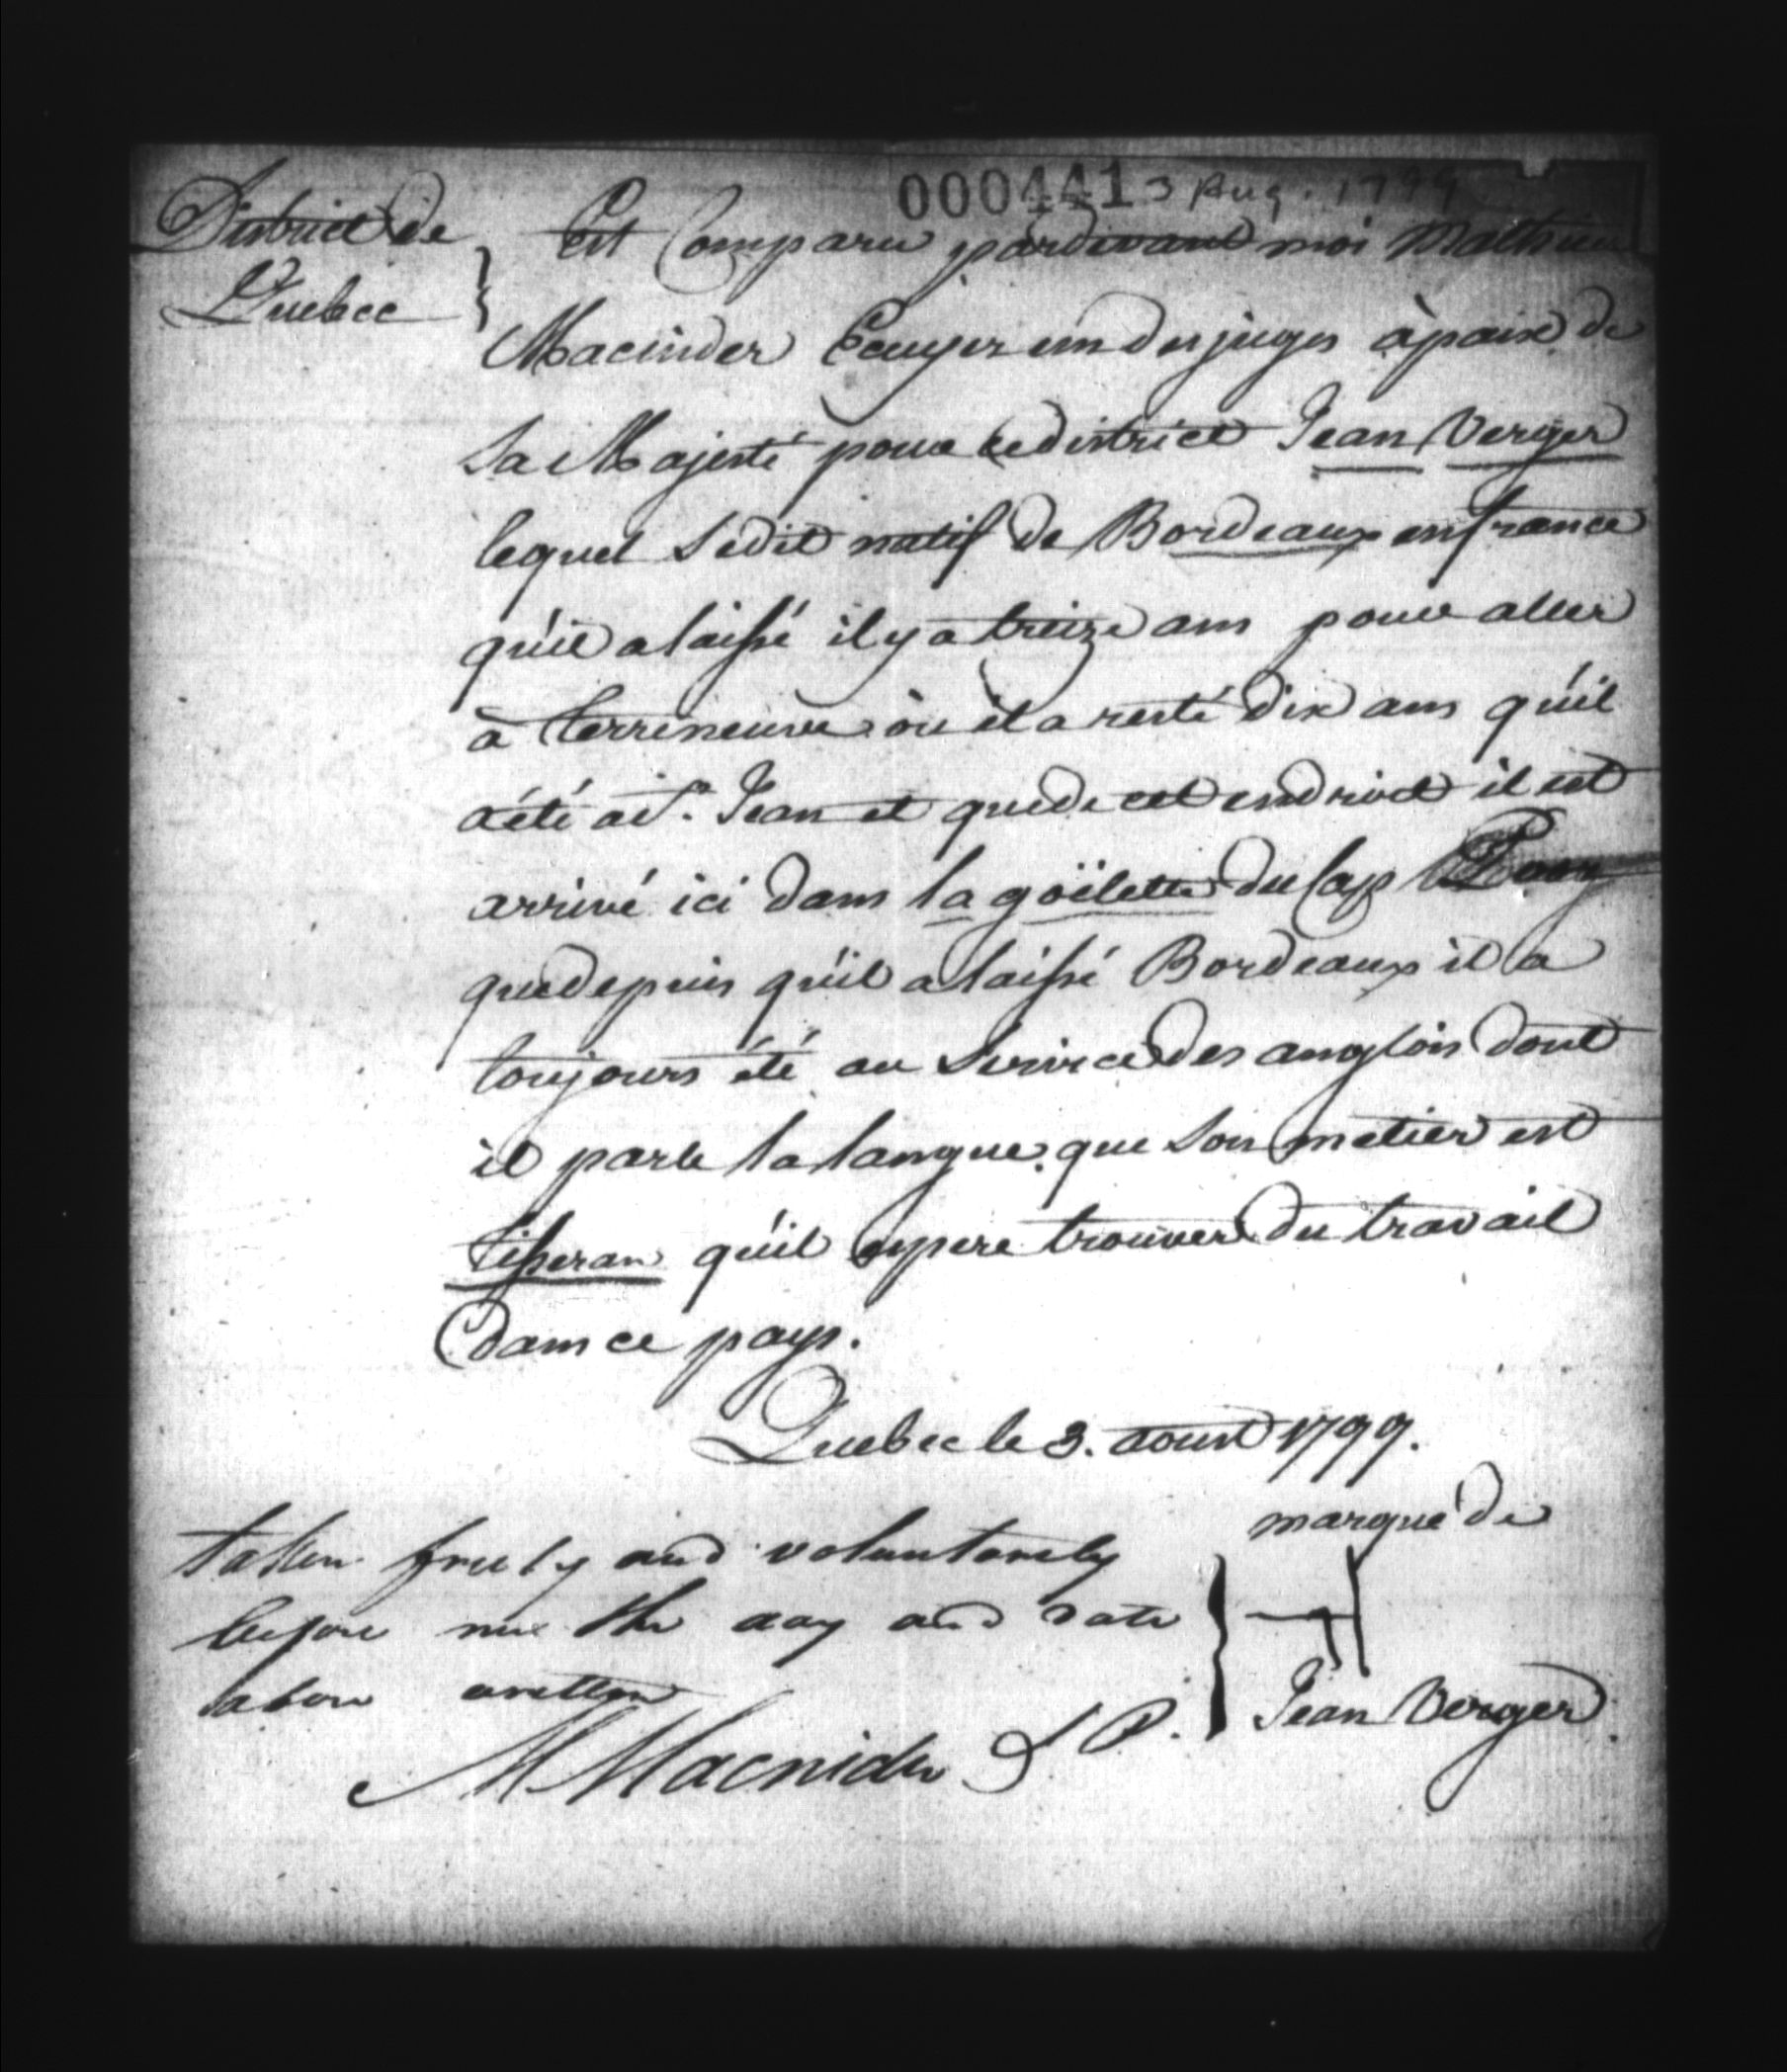 0004413 Aug. 1799
District de
Quebec
Est Comparu pardevant moi Mathieu
Macinder Ecuyer un des juges à paix de
Sa Majesté pour ce district Jean Verger
lequel se dit natif de Bordeaux en france
qu'il a laissé il y a treize ans pour aller
à terreneuve où il a resté dix ans qu'il
a été a St. Jean et que de cet endroit il est
arrivé ici dans la goïlette du Cap
que depuis qu'il a laissé Bordeaux il a
toujours été au service des anglois dont
il parle la langue. que son metier est
tisseran qu'il espere trouver du travail
dans ce pays.
Quebec le 3. aoust 1799.
marque de
taken freely and voluntarely
before me the day and date
above written
Jean Verger
M Macnider J P.